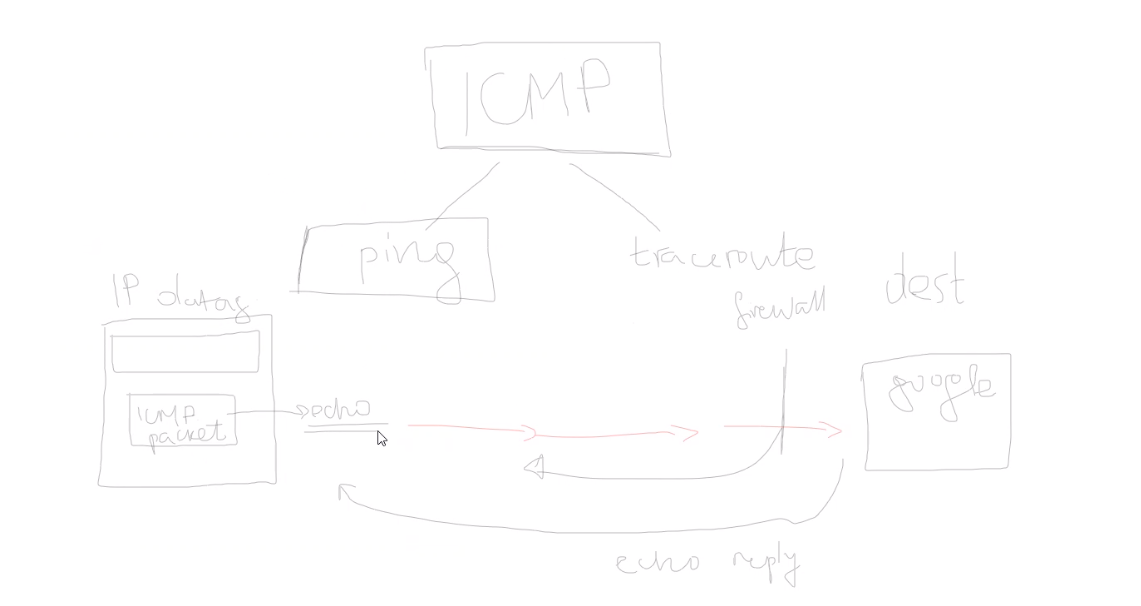 ICMP
ping
traceroute
IP datag
firewall
dest
ICMP
packet
echo
google
echo reply